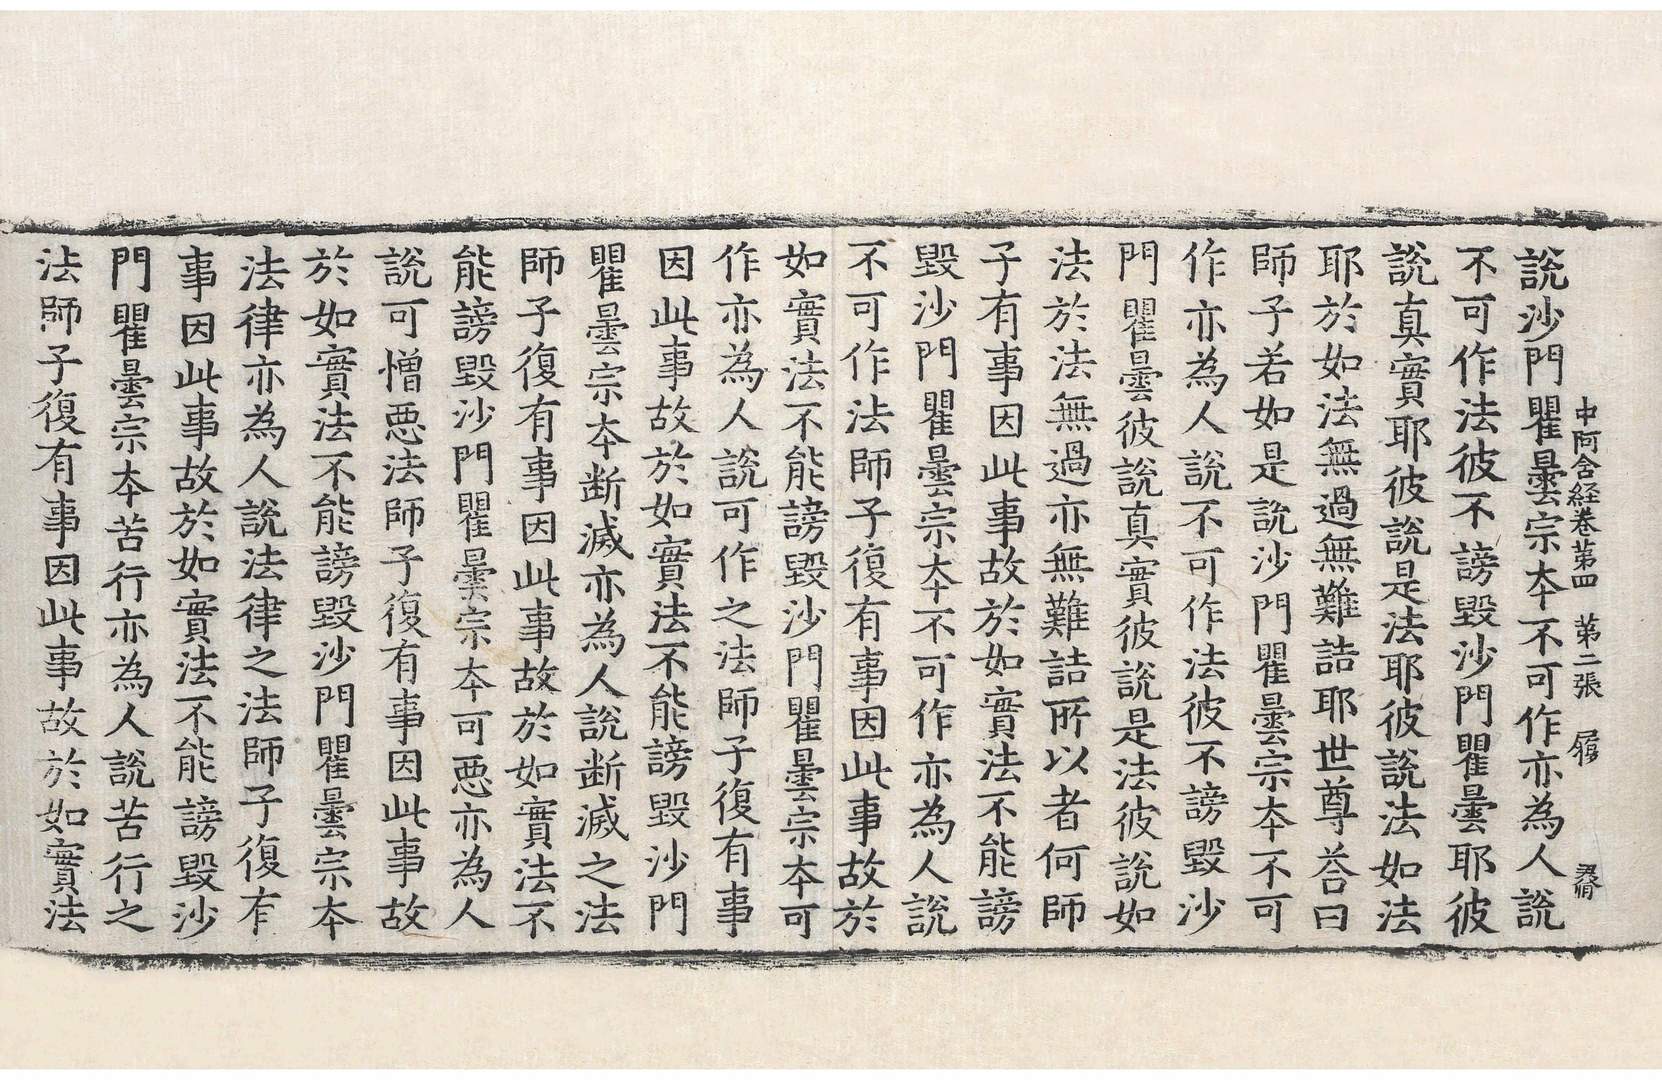 中阿含経卷第四 第二張 履
說沙門瞿曇宗本不可作亦為人說
不可作法彼不謗毀沙門瞿曇耶彼
說真實耶彼說是法耶彼說法如法
耶於如法無過無難詰耶世尊荅曰
師子若如是說沙門瞿曇宗本不可
作亦為人說不可作法彼不謗毀沙
門瞿曇彼說真實彼說是法彼說如
法於法無過亦無難詰所以者何師
子有事因此事故於如實法不能謗
毀沙門瞿曇宗本不可作亦為人說
不可作法師子復有事因此事故於
如實法不能謗毀沙門瞿曇宗本可
作亦為人說可作之法師子復有事
因此事故於如實法不能謗毀沙門
瞿曇宗本断滅亦為人說断滅之法
師子復有事因此事故於如實法不
能謗毀沙門瞿曇宗本可悪亦為人
說可憎悪法師子復有事因此事故
於如實法不能謗毀沙門瞿曇宗本
法律亦為人說法律之法師子復有
事因此事故於如實法不能謗毀沙
門瞿曇宗本苦行亦為人說苦行之
法師子復有事因此事故於如實法